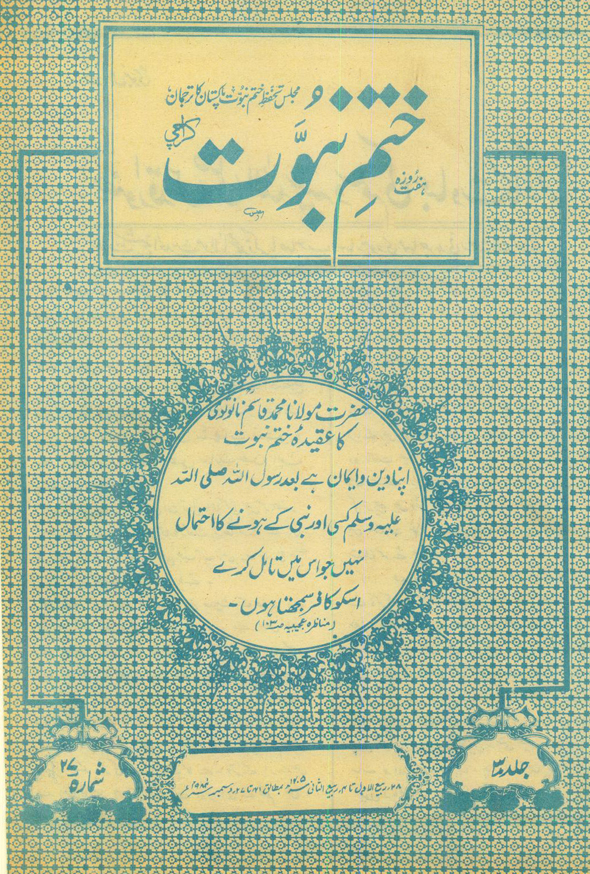 مجلس تحفظ ختم نبوت پاکستان کا ترجمان
ہفت روزہ
ختمِ نبوّت
کراچی
حضرت مولانا محمد قاسم نانوتوی
کا عقیدہ ختم نبوت
اپنا دین و ایمان ہے بعد رسول اللہ صلی اللہ
علیہ وسلم کسی اور نبی کے ہونے کا احتمال
نہیں جو اس میں تامل کرے
اسکو کافر سمجھتا ہوں۔
(مناظرہ عجیبہ صـ۱۰۳)
جلد ۳
شمارہ ۲۷
۲۸ ربیع الاول تا ۴ ربیع الثانی ۱۴۰۵ھ مطابق ۲۱ تا ۲۷ دسمبر ۱۹۸۴ء